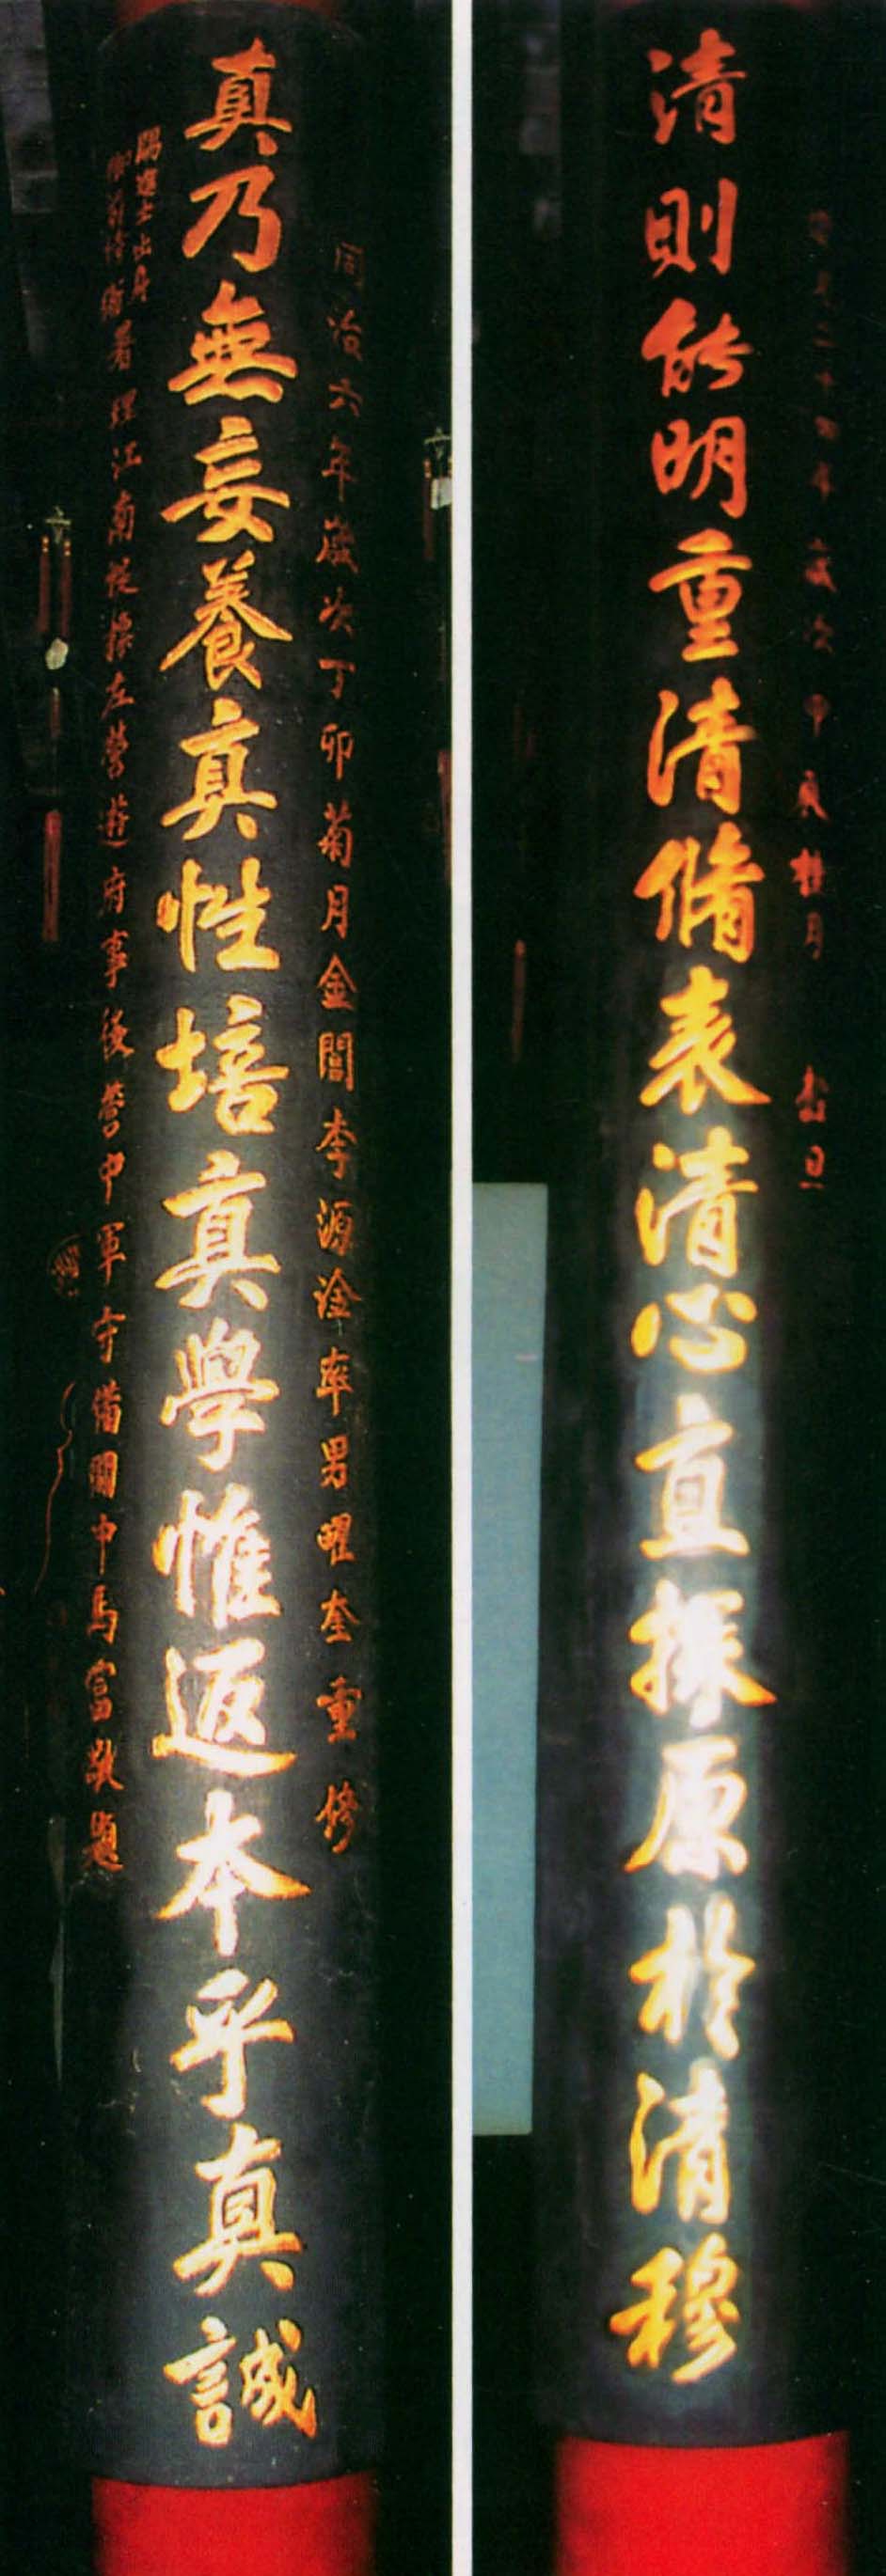 清則能明重清脩表清心直探原於清穆
同治六年歲次丁卯菊月金閶李源淦率男曜奎重修
真乃無妄養真性培真學惟返本乎真誠
賜進士出身
署理江南提標左營遊府事後營中軍守備關中馬富敬題